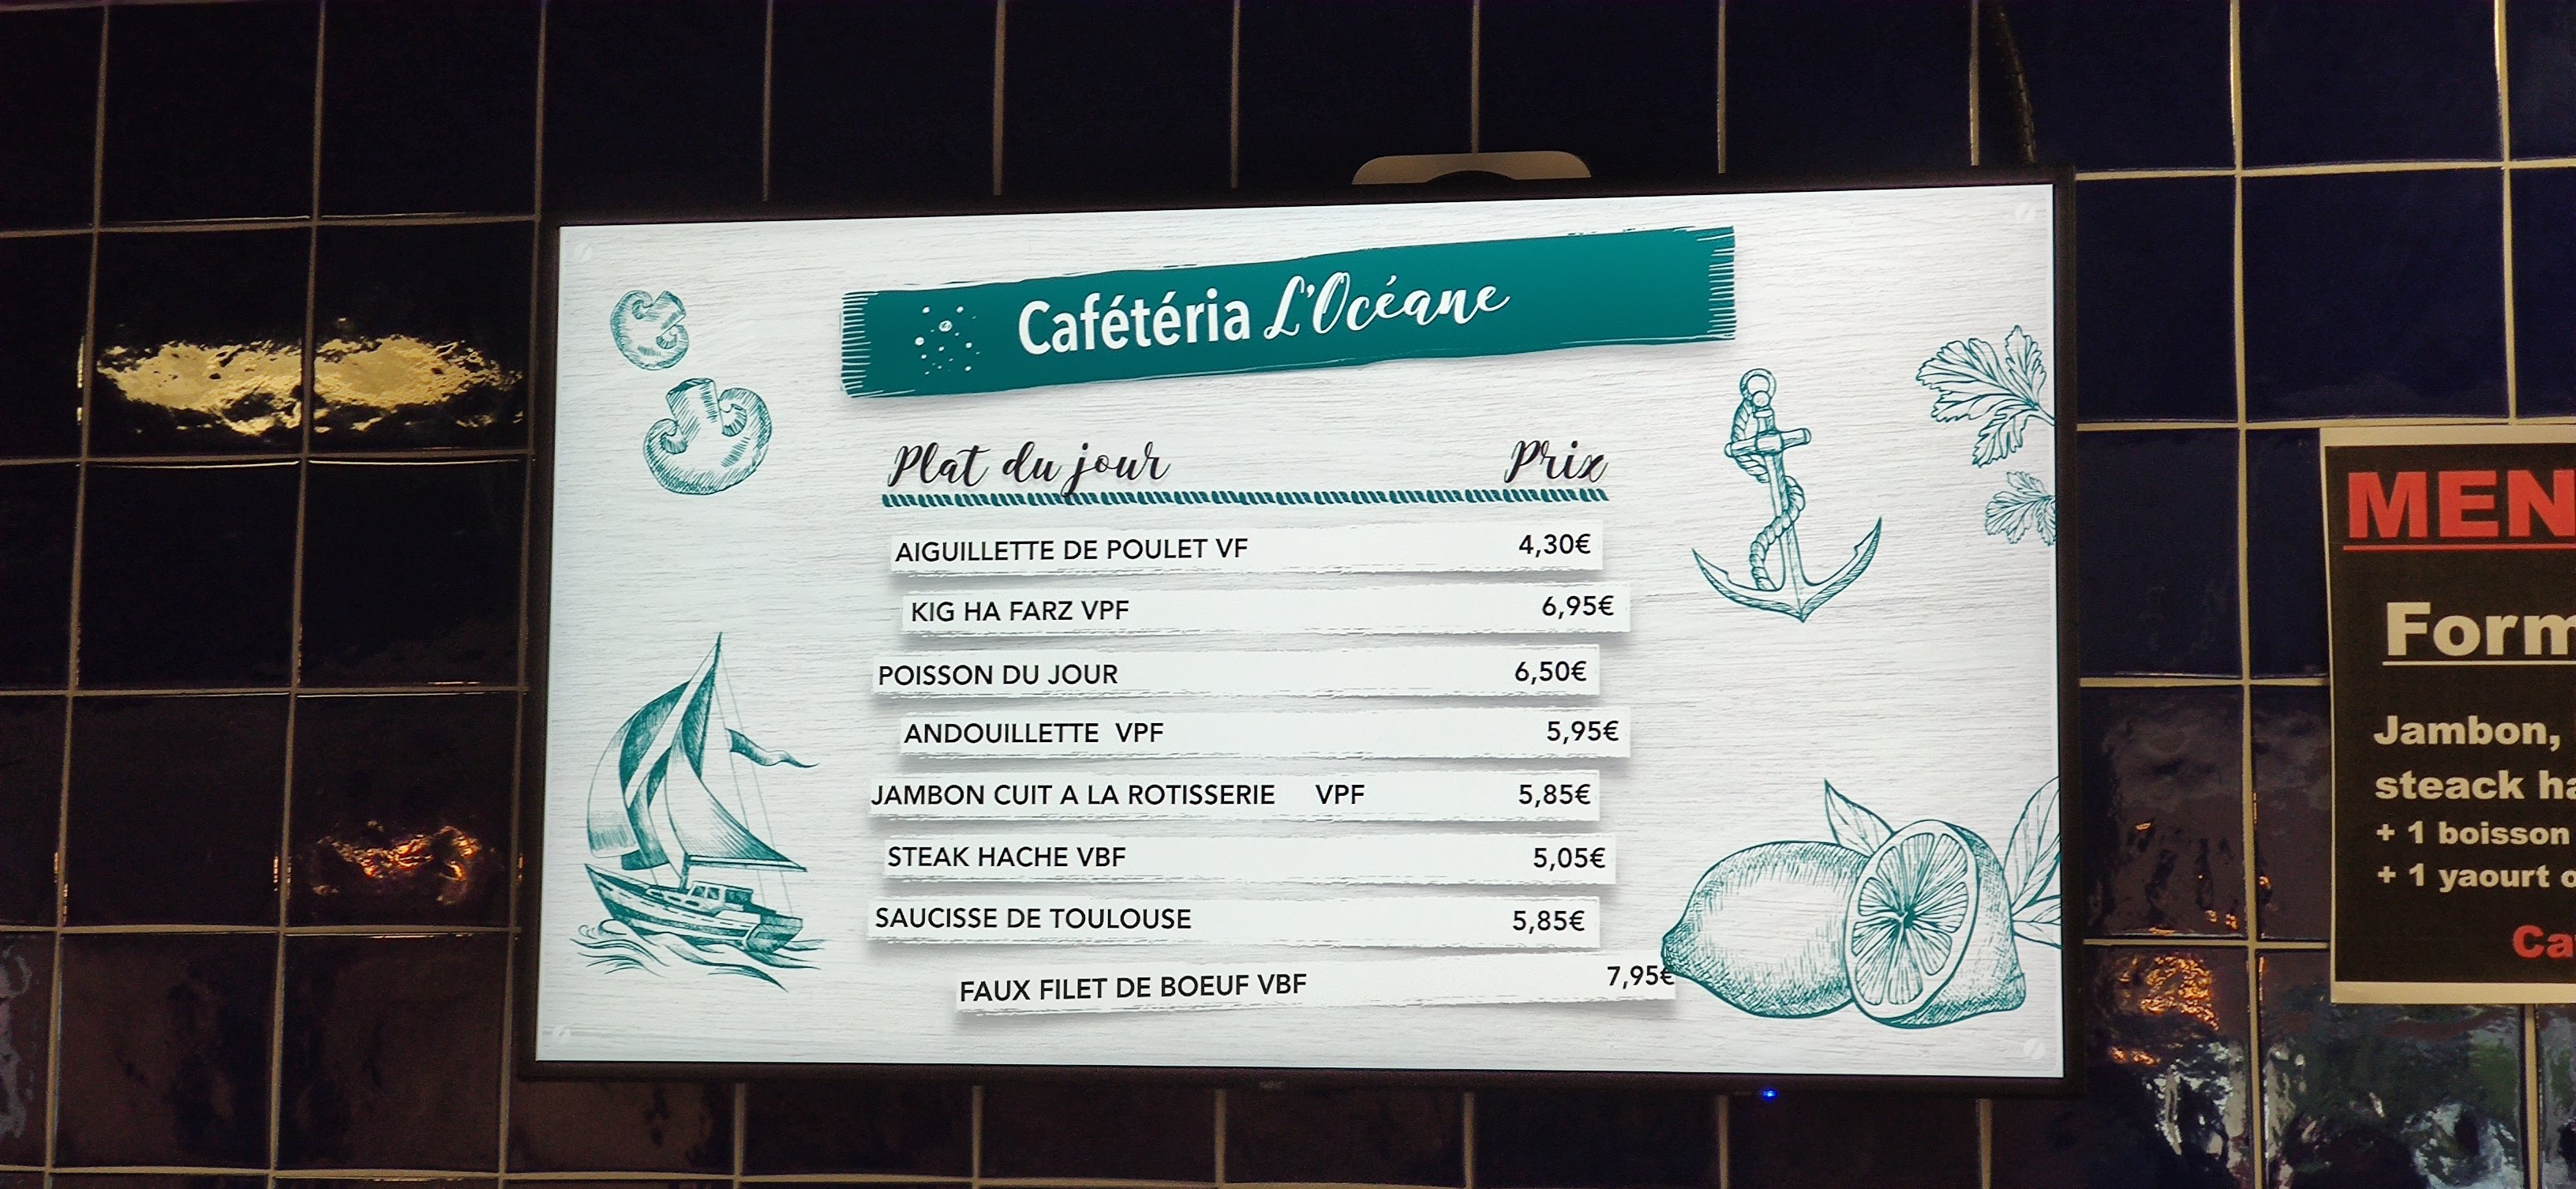 Cafétéria L'Océane
Plat du jour Prix
AIGUILLETTE DE POULET VF 4,30€
KIG HA FARZ VPF 6,95€
POISSON DU JOUR 6,50€
ANDOUILLETTE VPF 5,95€
JAMBON CUIT A LA ROTISSERIE VPF 5,85€
STEAK HACHE VBF 5,05€
SAUCISSE DE TOULOUSE 5,85€
FAUX FILET DE BOEUF VBF 7,95€
MEN
Form
Jambon,
steack ha
+ 1 boisson
+ 1 yaourt o
Ca